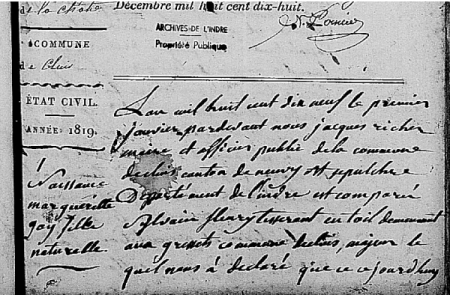 de la Chatre
Décembre mil huit cent dix-huit.
ARCHIVES DE L'INDRE
Propriété Publique
COMMUNE
de Cluis
ÉTAT CIVIL.
ANNÉE 1819.
1
Naissance
margueritte
goy fille
naturelle
L'an mil huit cent dix neuf le premier
janvier pardevant nous jacques richer
maire et officier public de la commune
de cluis canton de neuvy st sepulchre
Département de l'indre est comparu
Sylvain fleury tisserant en toil demeurant
aux grissets commune de cluis, majeur le
quel nous à déclaré que ce ajourdhuy